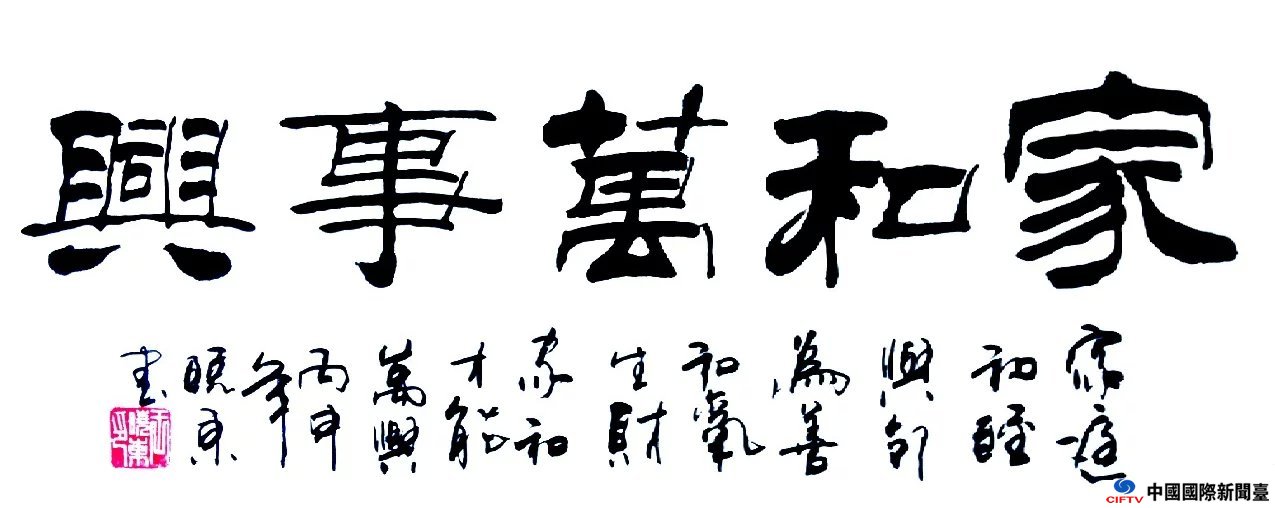 家和萬事興
家庭
和睦
與鄰
為善
和氣
生財
家和
才能
萬興
丙申
年
曉東
書
CIFTV 中國國際新聞臺